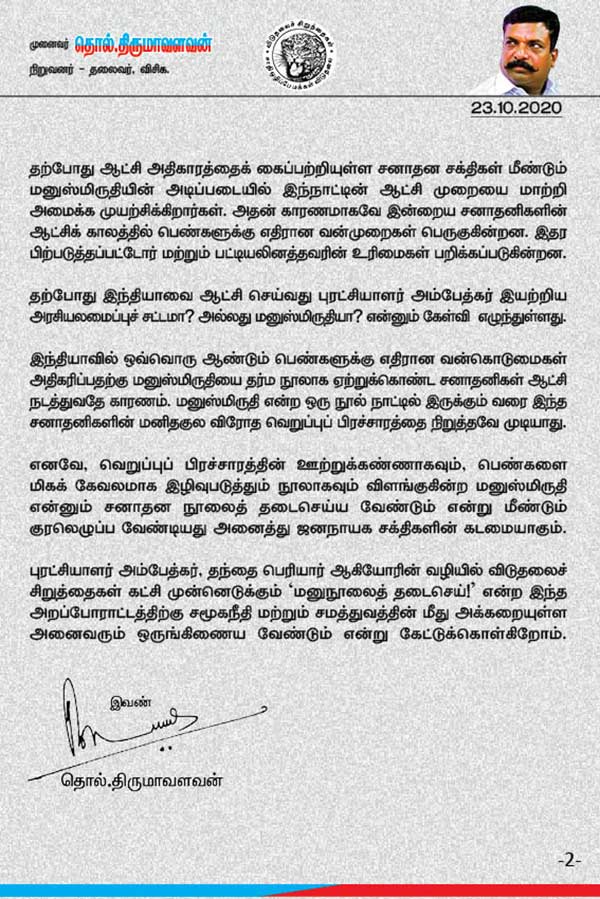 முனைவர் தொல்.திருமாவளவன்
நிறுவனர் – தலைவர், விசிக.
விடுதலைச் சிறுத்தைகள்
23.10.2020
தற்போது ஆட்சி அதிகாரத்தைக் கைப்பற்றியுள்ள சனாதன சக்திகள் மீண்டும்
மனுஸ்மிருதியின் அடிப்படையில் இந்நாட்டின் ஆட்சி முறையை மாற்றி
அமைக்க முயற்சிக்கிறார்கள். அதன் காரணமாகவே இன்றைய சனாதனிகளின்
ஆட்சிக் காலத்தில் பெண்களுக்கு எதிரான வன்முறைகள் பெருகுகின்றன. இதர
பிற்படுத்தப்பட்டோர் மற்றும் பட்டியலினத்தவரின் உரிமைகள் பறிக்கப்படுகின்றன.
தற்போது இந்தியாவை ஆட்சி செய்வது புரட்சியாளர் அம்பேத்கர் இயற்றிய
அரசியலமைப்புச் சட்டமா? அல்லது மனுஸ்மிருதியா? என்னும் கேள்வி எழுந்துள்ளது.
இந்தியாவில் ஒவ்வொரு ஆண்டும் பெண்களுக்கு எதிரான வன்கொடுமைகள்
அதிகரிப்பதற்கு மனுஸ்மிருதியை தர்ம நூலாக ஏற்றுக்கொண்ட சனாதனிகள் ஆட்சி
நடத்துவதே காரணம். மனுஸ்மிருதி என்ற ஒரு நூல் நாட்டில் இருக்கும் வரை இந்த
சனாதனிகளின் மனிதகுல விரோத வெறுப்புப் பிரச்சாரத்தை நிறுத்தவே முடியாது.
எனவே, வெறுப்புப் பிரச்சாரத்தின் ஊற்றுக்கண்ணாகவும், பெண்களை
மிகக் கேவலமாக இழிவுபடுத்தும் நூலாகவும் விளங்குகின்ற மனுஸ்மிருதி
என்னும் சனாதன நூலைத் தடைசெய்ய வேண்டும் என்று மீண்டும்
குரலெழுப்ப வேண்டியது அனைத்து ஜனநாயக சக்திகளின் கடமையாகும்.
புரட்சியாளர் அம்பேத்கர், தந்தை பெரியார் ஆகியோரின் வழியில் விடுதலைச்
சிறுத்தைகள் கட்சி முன்னெடுக்கும் ‘மனுநூலைத் தடைசெய்!’ என்ற இந்த
அறப்போராட்டத்திற்கு சமூகநீதி மற்றும் சமத்துவத்தின் மீது அக்கறையுள்ள
அனைவரும் ஒருங்கிணைய வேண்டும் என்று கேட்டுக்கொள்கிறோம்.
இவண்
தொல்.திருமாவளவன்
-2-